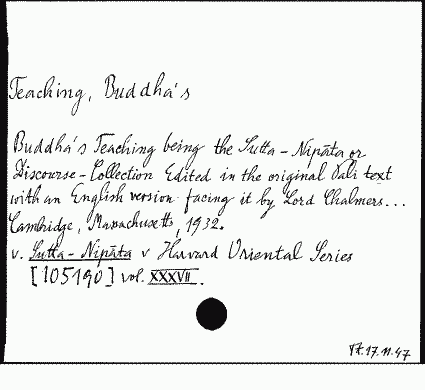 Teaching, Buddha's
Buddha's Teaching being the Sutta-Nipāta or
Discourse-Collection Edited in the original Pali text
with an English version facing it by Lord Chalmers...
Cambridge, Massachusetts, 1932.
v. Sutta-Nipāta v Harvard Oriental Series
[105190] vol. XXXVII.
17.11.47